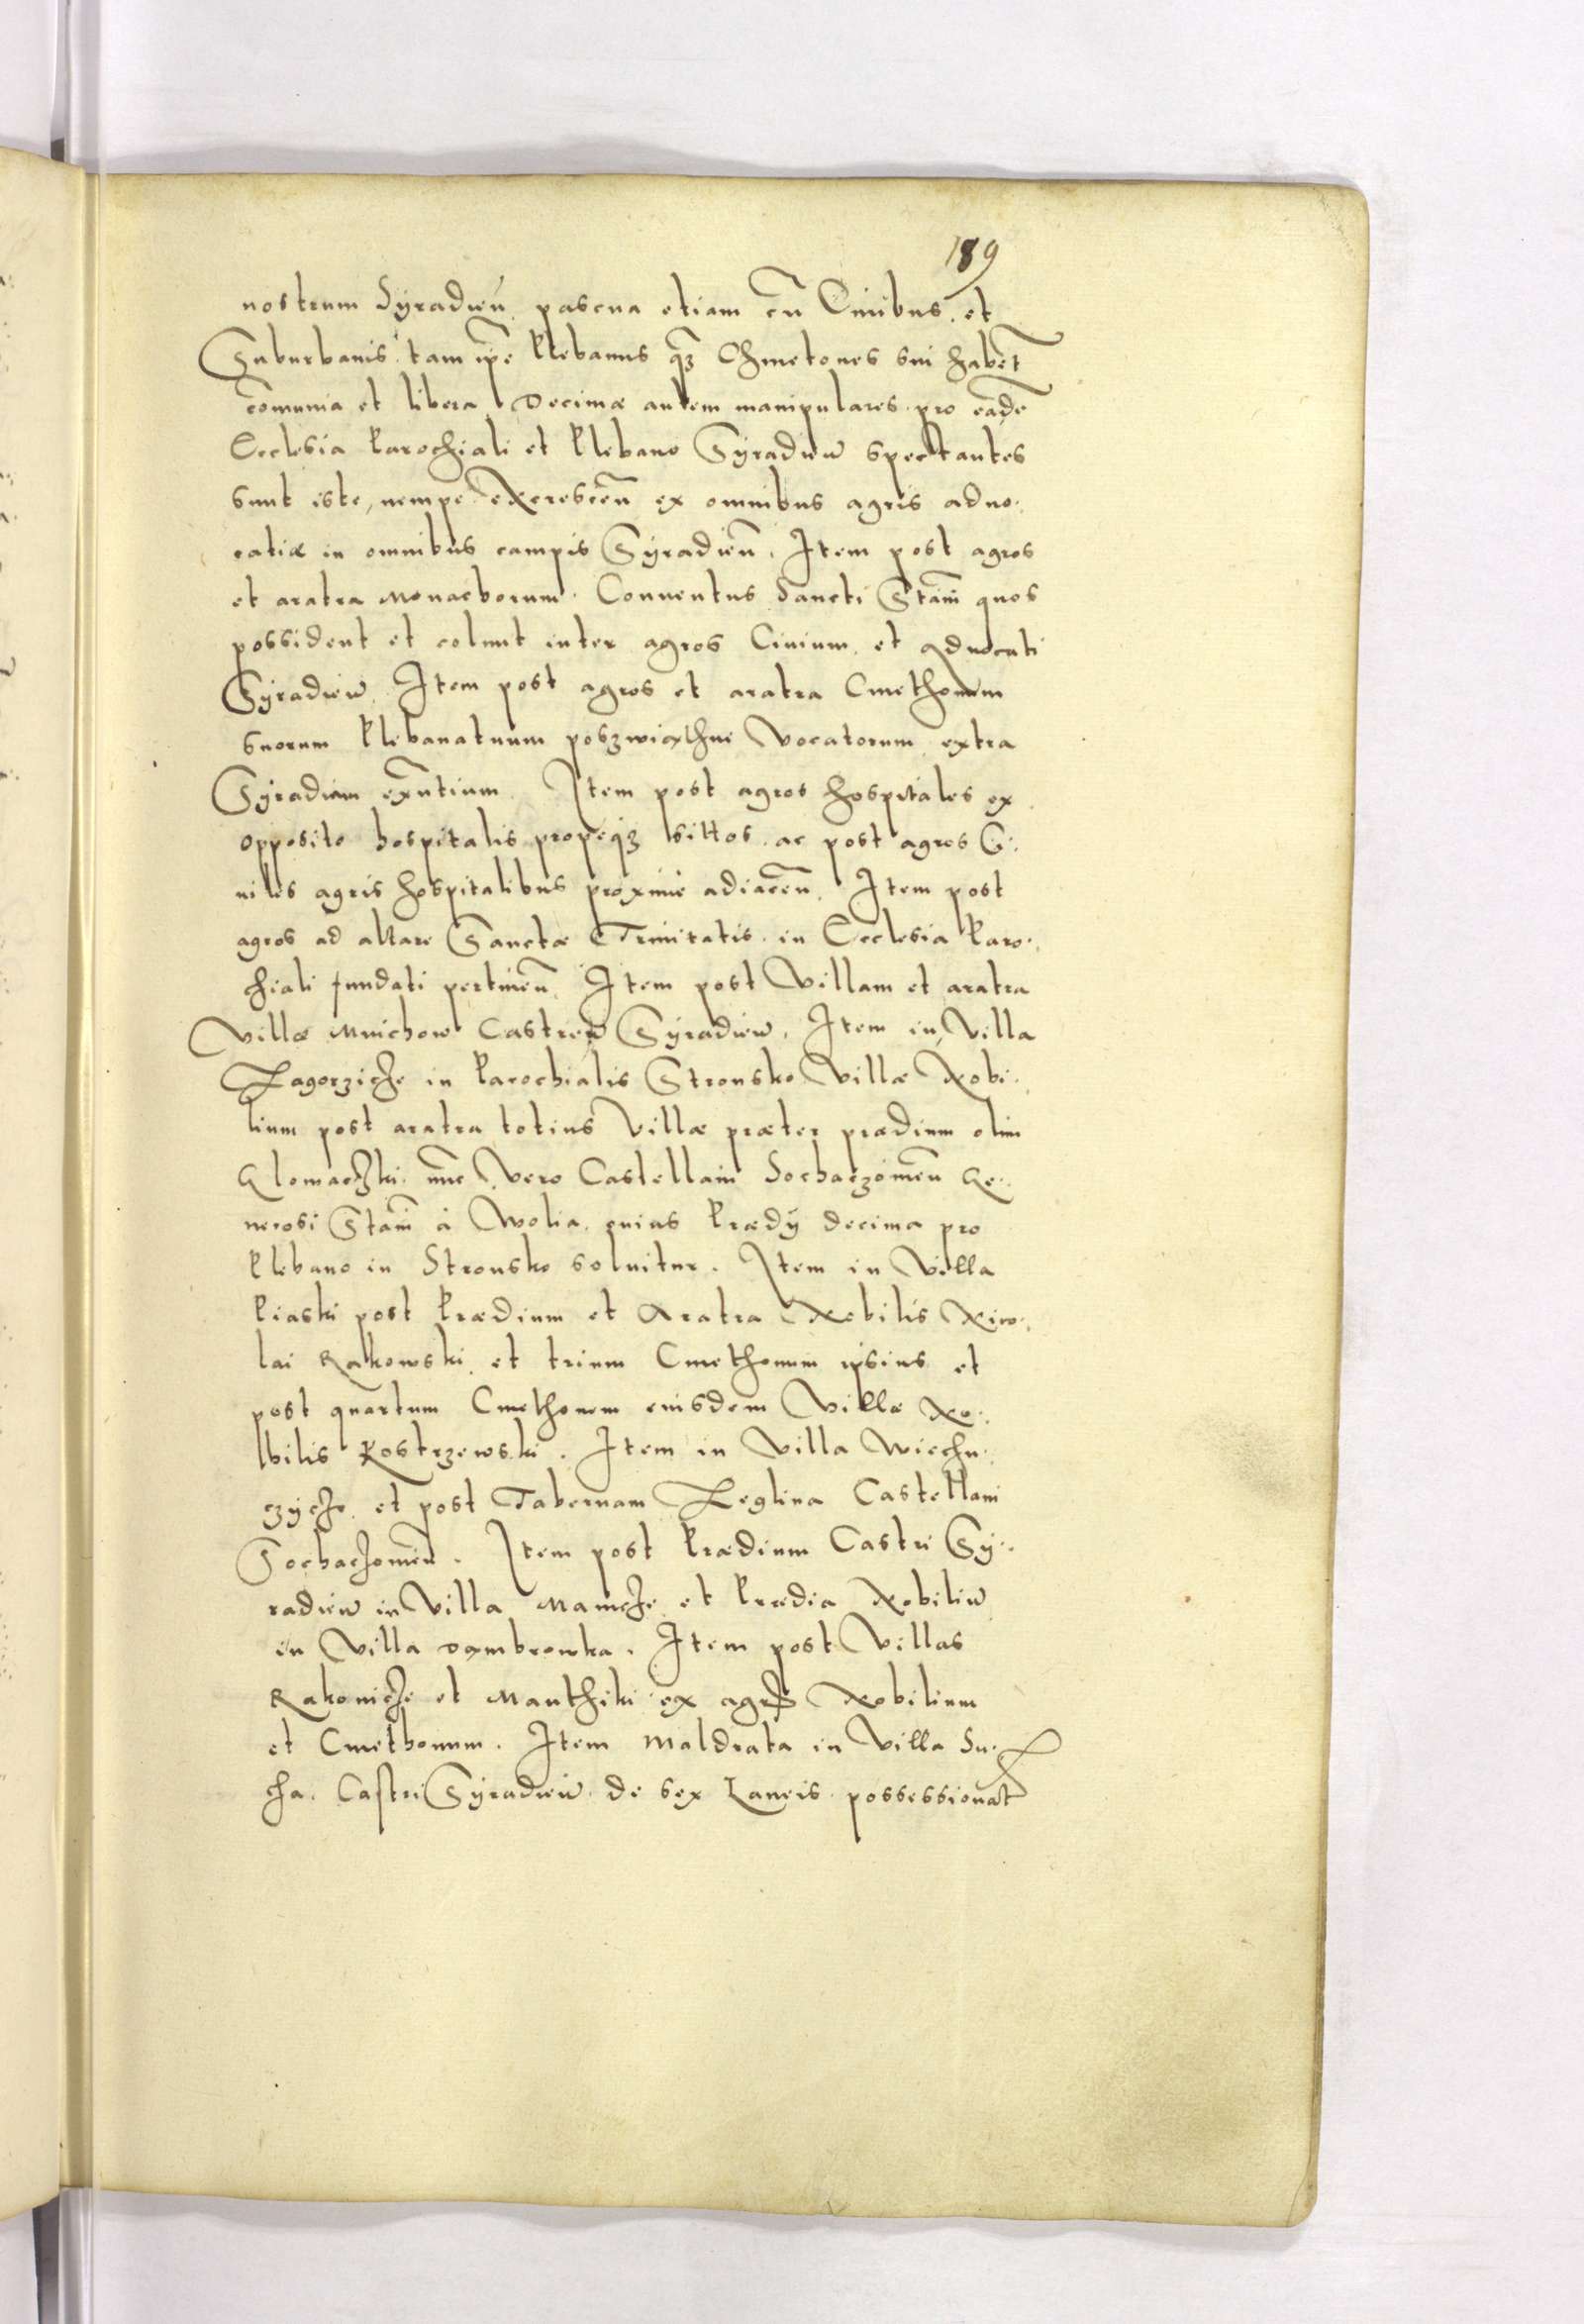 189
nostrum Syradień pascua etiam cū Ciuibus et
Suburbanis tam ipē Plebanus q̃ʒ Chmetones sui habēt
cōmunia et libera Decimæ autem manipulares pro eādē
Ecclesia Parochiali et Plebano Syradień spectantes
sunt iste, nempe Excrescēn ex omnibus agris aduo:
catiæ in omnibus campis Syradień. Item post agros
et aratra Monachorum Conuentus Sancti Stani quos
possident et colunt inter agros Ciuium et Aduocati
Syradień Item post agros et aratra Cmethonum
suorum Plebanatuum poszwiąthne vocatorum extra
Syradiam exn̄tium Item post agros hospitales ex
opposito hospitalis propeqʒ sittos ac post agros Ci:
uiles agris hospitalibus proximè adiacēn Item post
agros ad altare Sanctæ Trinitatis in Ecclesia Paro:
chiali fundati pertinēn Item post Villam et aratra
Villæ Mnichow Castreń Syradień Item in Villa
Zagorzicze in Parochialis Stronsko Villæ Nobi:
lium post aratra totius Villæ præter prædium olim
Glomaczki nnc vero Castellani Sochaczoviēn Ge:
nerosi Stani à Wolia cuius Prædÿ decima pro
Plebano in Stronsko soluitur. Item in Villa
Piaski post Prædium et Aratra Nobilis Nico:
lai Rakowski et trium Cmethonum ipsius et
post quartum Cmethonem eiusdem Villæ No:
bilis Kostrzewski. Item in Villa Wiechu:
czycze et post Tabernam Zeglina Castellani
Sochaczoviēn. Item post Prædium Castri Sy:
radień in Villa Mamcze et Prædia Nobiliū
in Villa Dąmbrowka. Item post Villas
Rakonicze et Manthiki ex agris Nobilium
et Cmethonum. Item Maldrata in Villa Su:
cha Castri Syradień de sex Laneis possessionat